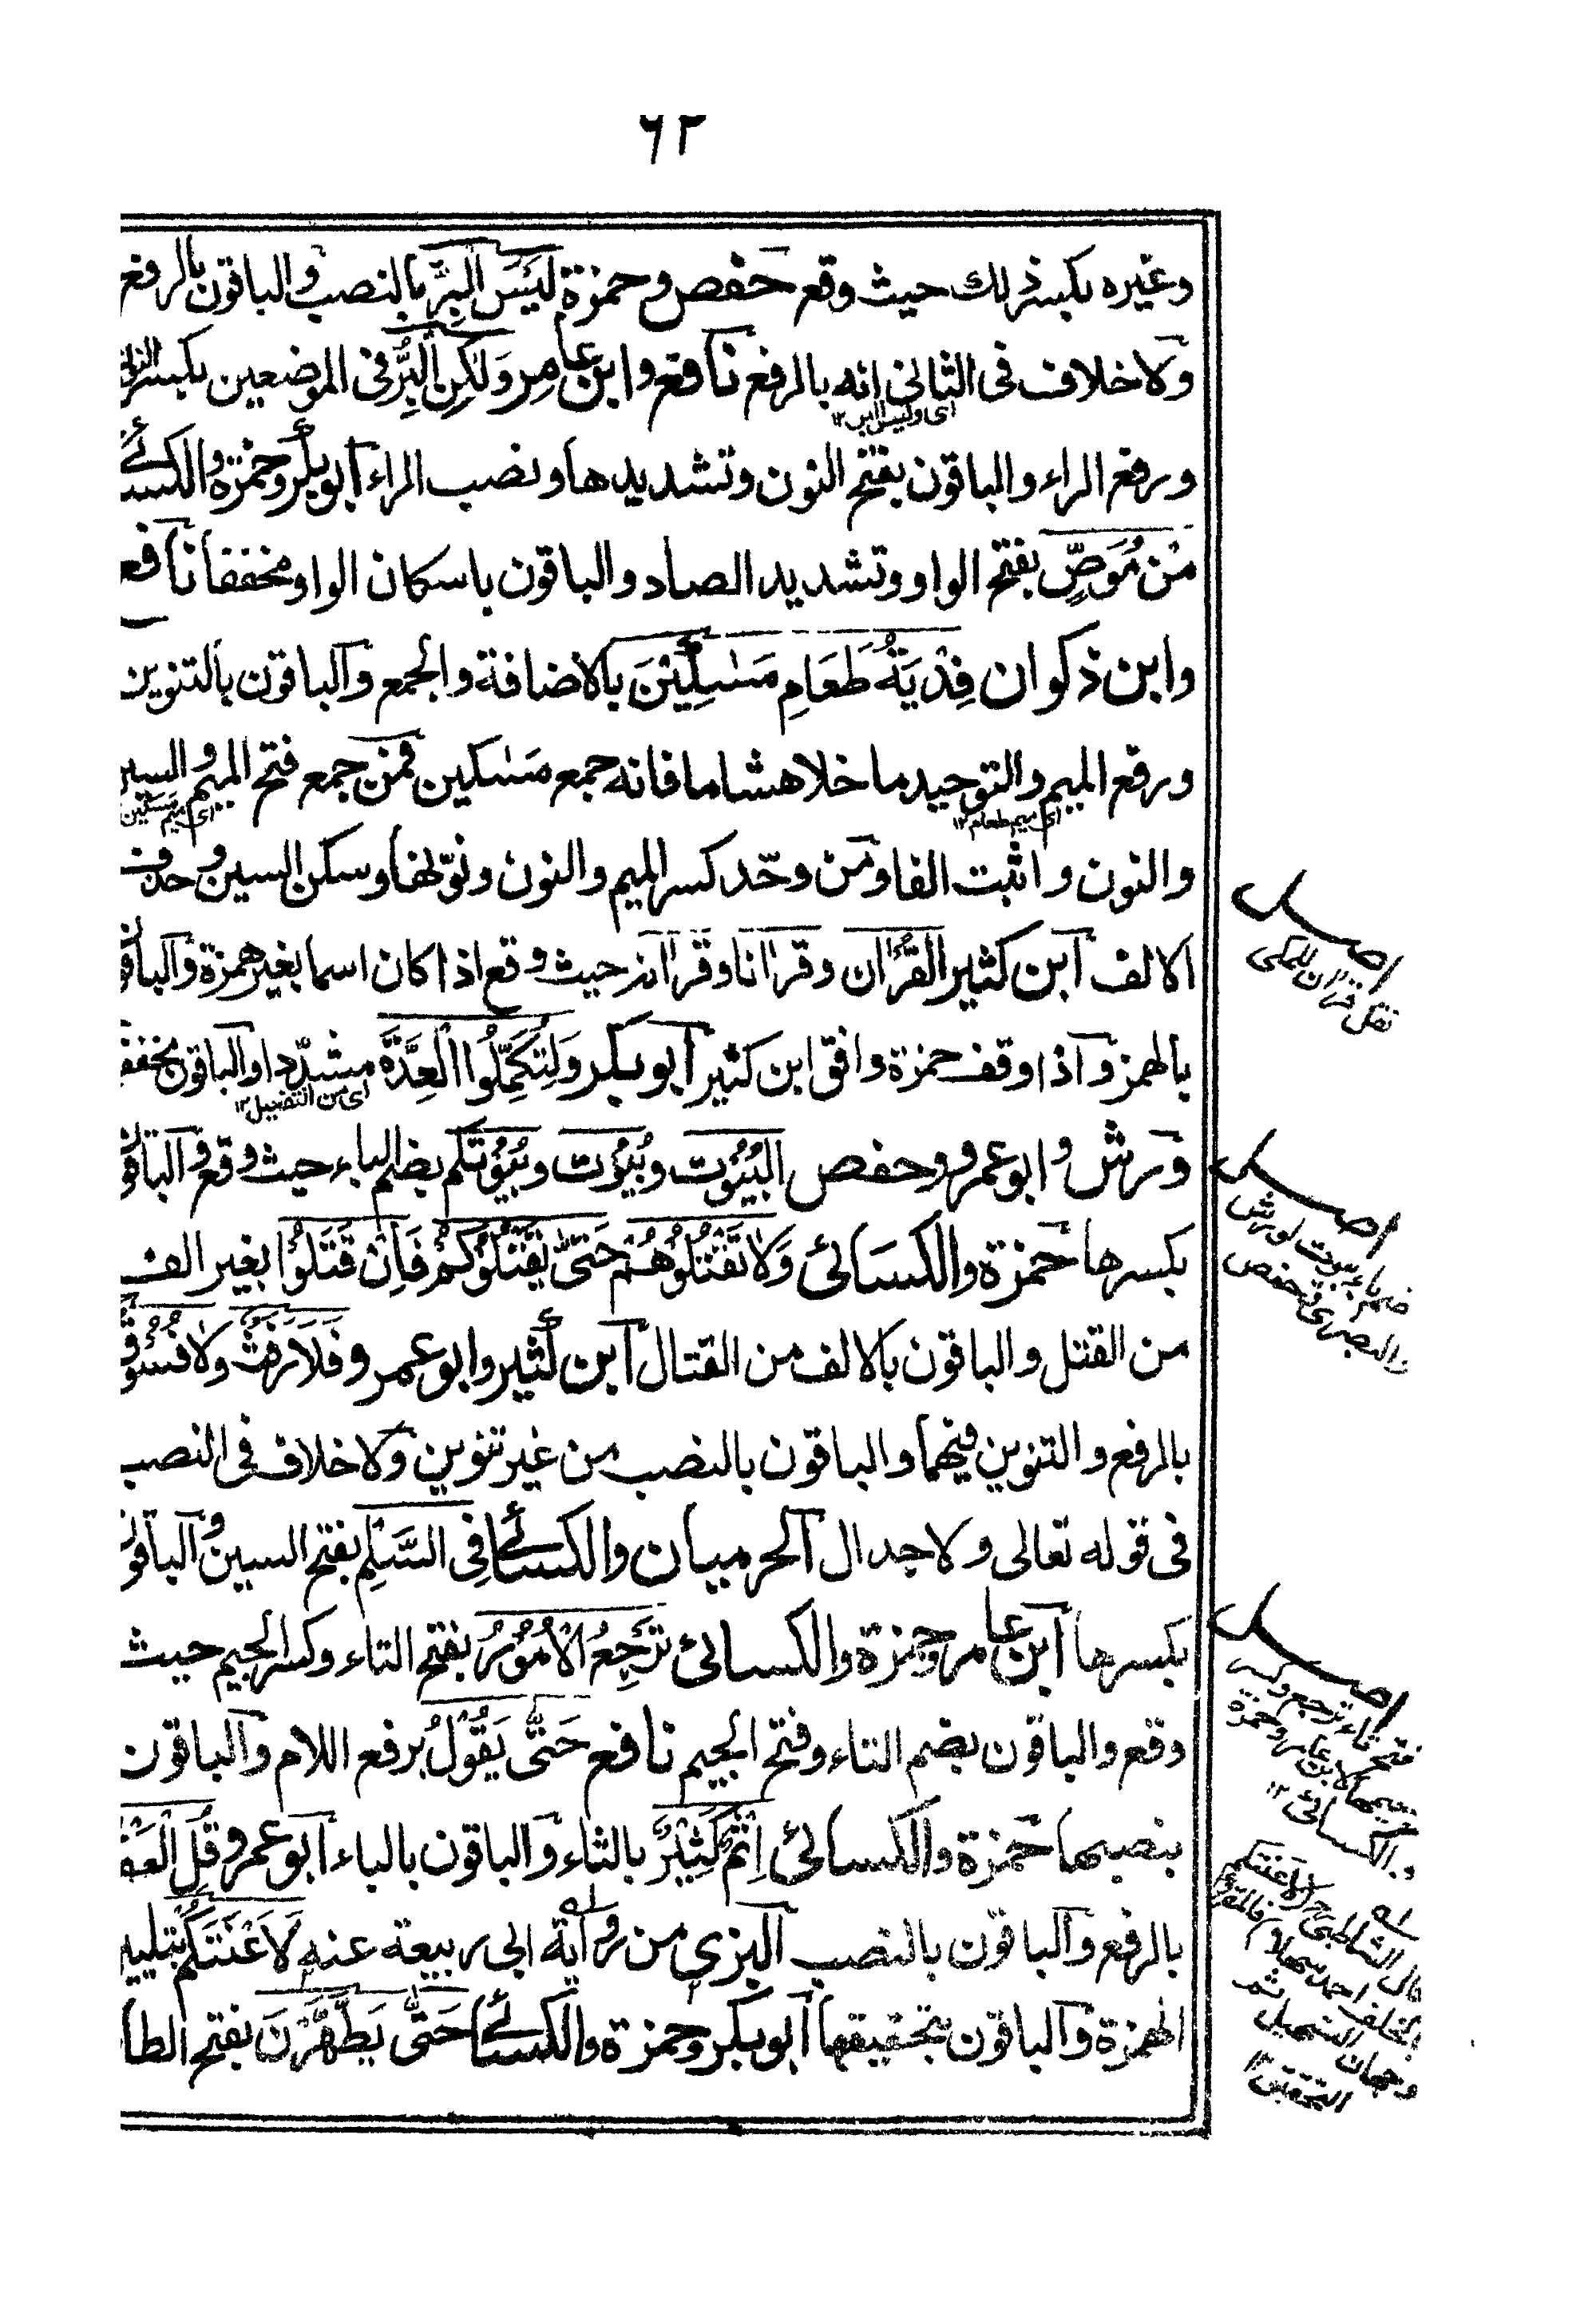 ٦٢
وغيره بكسر ذلك حيث وقع حفص وحمزة لَيْسَ الْبِرَّ بالنصب والباقون بالرفع
ولا خلاف فى الثانى انه بالرفع نافع وابن عامر وَلٰكِنِ الْبِرُّ فى الموضعين بكسر النون
اى وليس البر ١٢
ورفع الراء والباقون بفتح النون وتشديدها ونصب الراء ابو بكر وحمزة والكسائى
مِنْ مُوَصٍّ بفتح الواو وتشديد الصاد والباقون باسكان الواو مخففا نافع
وابن ذكوان فِدْيَةُ طَعَامِ مَسٰكِيْنَ بالاضافة والجمع والباقون بالتنوين
ورفع الميم والتوحيد ما خلا هشاما فانه جمع مسٰكين فمن جمع فتح الميم والسين
اى ميم طعام ١٢
اى ميم مسٰكين
والنون واثبت الفا ومن وحّد كسر الميم والنون ونوّنها وسكن السين وحذف
الالف ابن كثير القُرَان وقرانا وقرانه حيث وقع اذا كان اسما بغير همزة والباقون
بالهمز واذا وقف حمزة وافق ابن كثير ابو بكر وَلِتُكَمِّلُوا الْعِدَّةَ مشدّدا والباقون مخففا
اى من التفعيل ١٢
ورش وابو عمرو وحفص البُيُوت وبُيُوت وبُيُوتكم بضم الباء حيث وقع والباقون
بكسرها حمزة والكسائى وَلَا تَقْتُلُوْهُمْ حَتّٰى يَقْتُلُوْكُمْ فَاِنْ قَتَلُوْا بغير الف
من القتل والباقون بالالف من القتال ابن كثير وابو عمرو فلا رفث ولا فسوق
بالرفع والتنوين فيهما والباقون بالنصب من غير تنوين ولا خلاف فى النصب
فى قوله تعالى ولا جدال الحرميان والكسائى فِى السَّلْمِ بفتح السين والباقون
بكسرها ابن عامر وحمزة والكسائى تَرْجِعُ الْاُمُوْرُ بفتح التاء وكسر الجيم حيث
وقع والباقون بضم التاء وفتح الجيم نافع حَتّٰى يَقُوْلُ برفع اللام والباقون
بنصبها حمزة والكسائى اِثْمٌ كَثِيْرٌ بالثاء والباقون بالباء ابو عمرو قُلِ الْعَفْوُ
بالرفع والباقون بالنصب البزى من رواية ابى ربيعة عنه لَاَعْنَتَكُمْ بتليين
الهمزة والباقون بتحقيقها ابو بكر وحمزة والكسائى حَتّٰى يَطَّهَّرْنَ بفتح الطاء
اصل
نقل قران للمكى
اصل
ضم باء بيوت لورش
والبصرى وحفص
اصل
فتح تاء ترجع وكسر
جيمها لابن عامر وحمزة
والكسائى ١٢
قال الشاطبى ح لاعنتكم
بالخلف احمد سهلا
وجهان التسهيل ثم
التحقيق ١٢